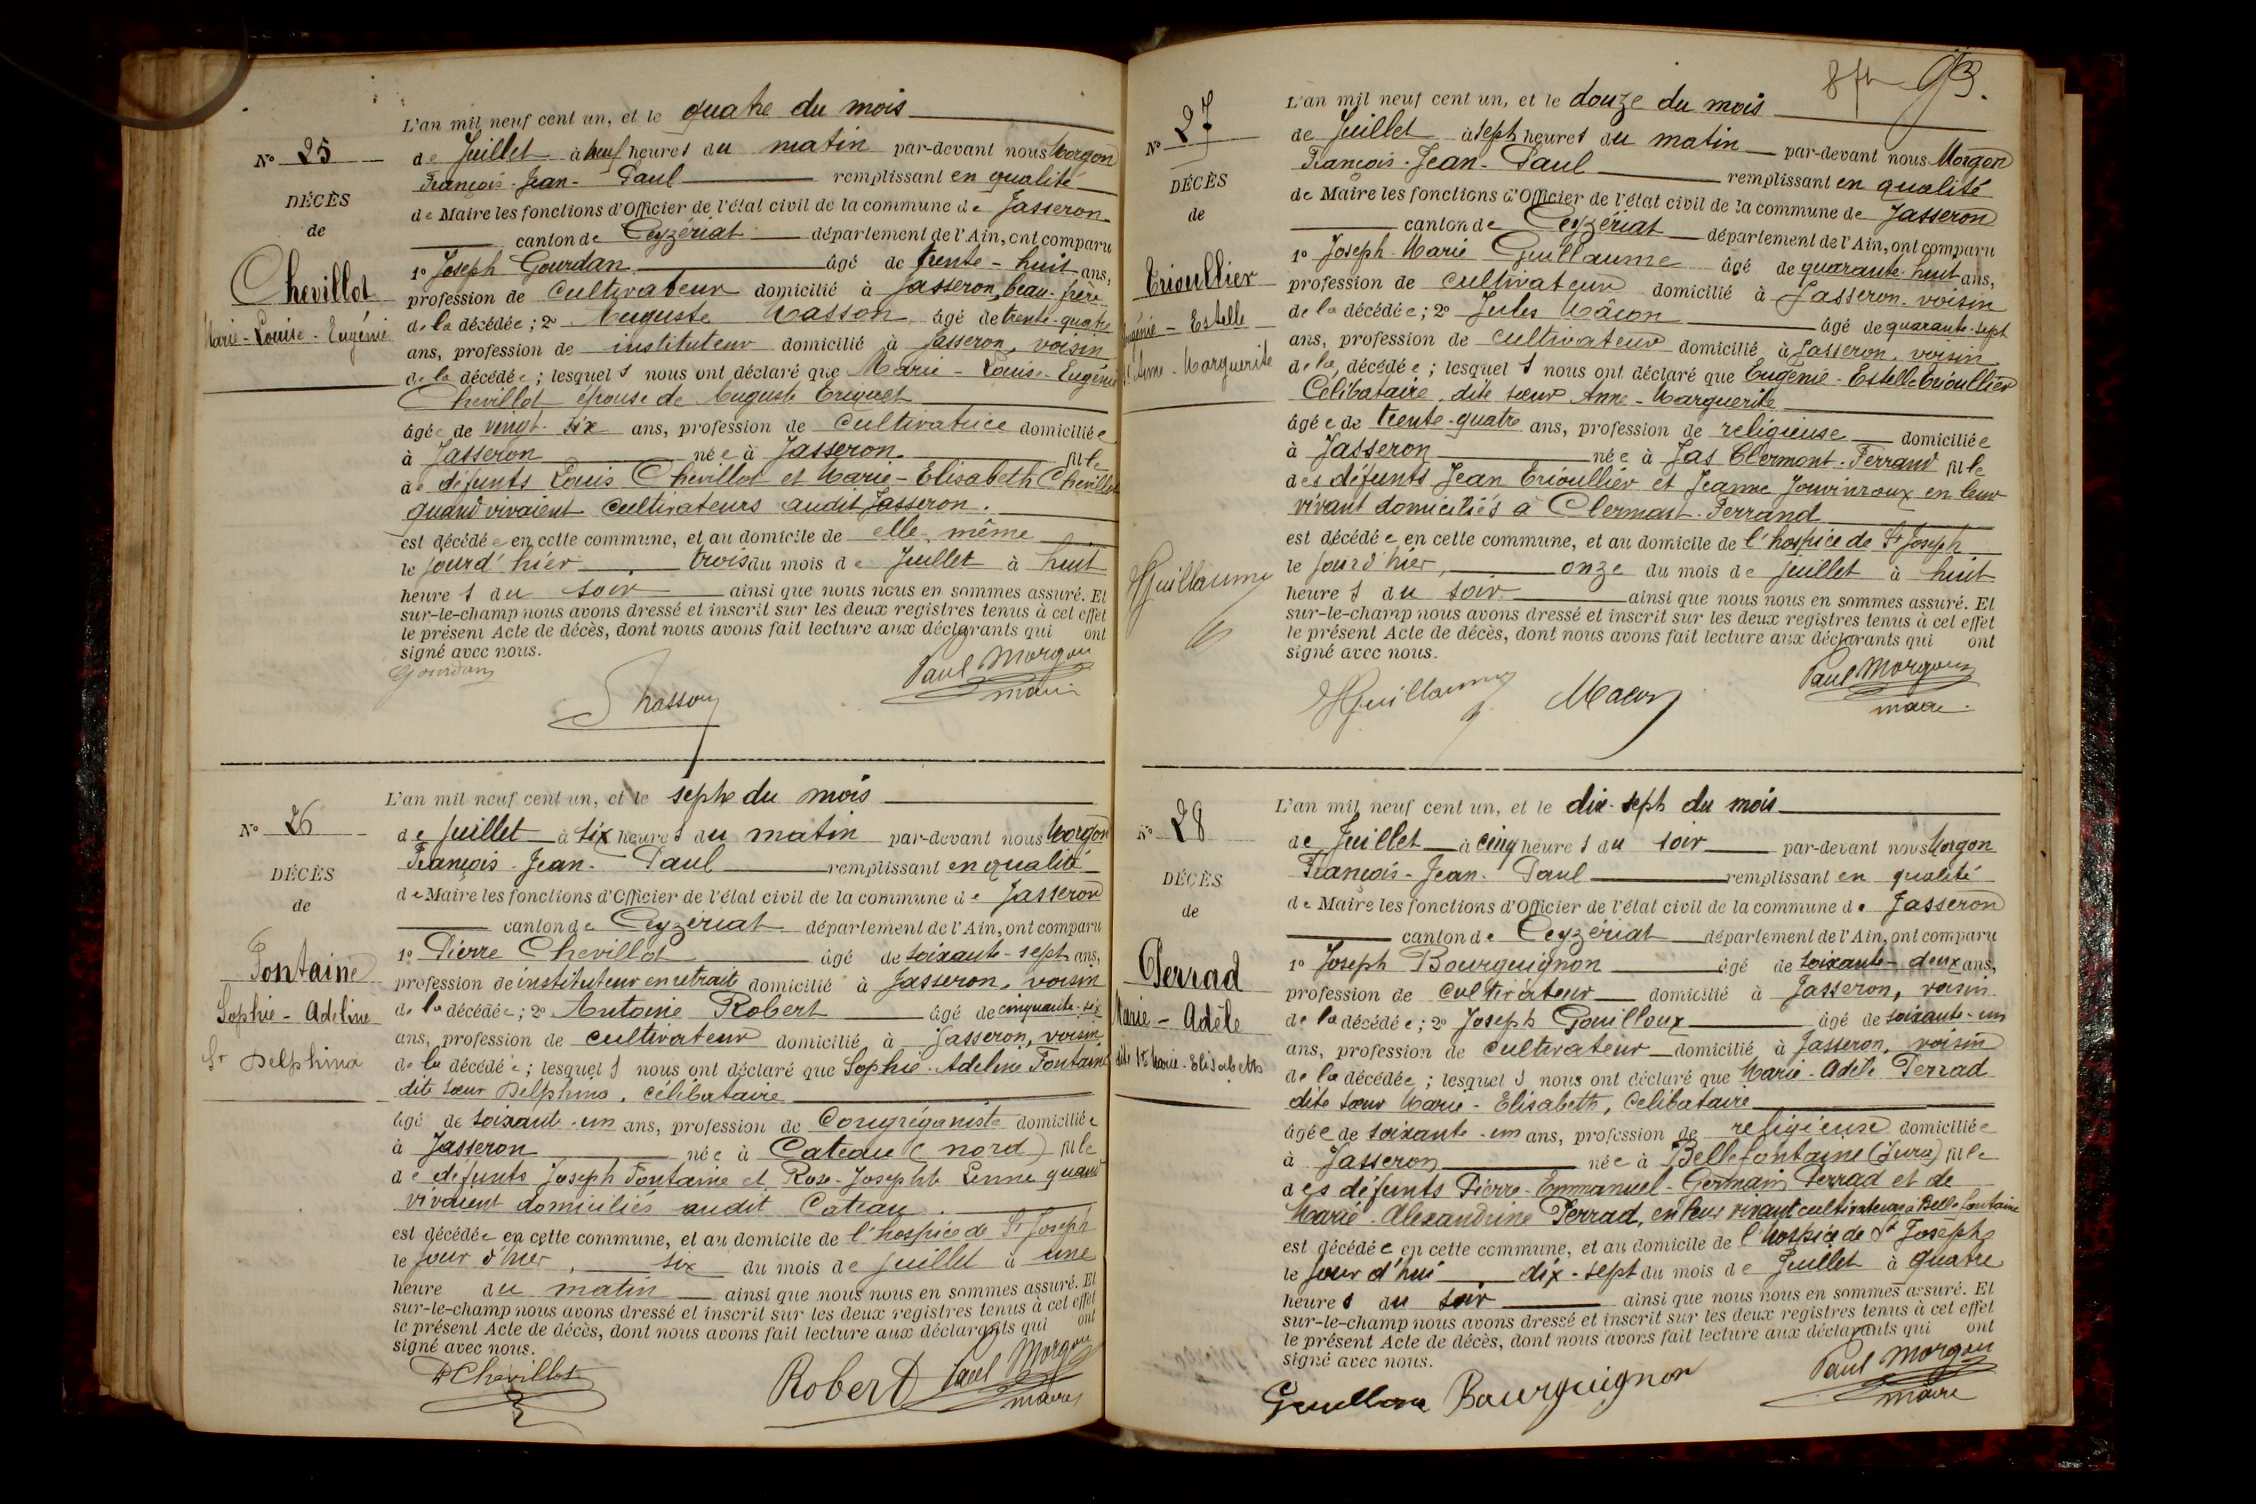 L'an mil neuf cent un, et le quatre du mois
N° 25
de Juillet à neuf heures du matin par-devant nous Morgon
François-Jean-Paul remplissant en qualité
DÉCÈS
de Maire les fonctions d'Officier de l'état civil de la commune de Jasseron
de
canton de Ceyzériat département de l'Ain, ont comparu
1° Joseph Gourdan âgé de trente-huit ans,
Chevillot
profession de cultivateur domicilié à Jasseron, beau-frère
Marie-Louise-Eugénie
de la décédée; 2° Auguste Masson âgé de trente-quatre
ans, profession de instituteur domicilié à Jasseron, voisin
de la décédée; lesquels nous ont déclaré que Marie-Louise-Eugénie
Chevillot épouse de Auguste Triquet
âgée de vingt-six ans, profession de cultivatrice domiciliée
à Jasseron née à Jasseron fille
de défunts Louis Chevillot et Marie-Elisabeth Chevillot
quand vivaient cultivateurs audit Jasseron.
est décédée en cette commune, et au domicile de elle-même
le jourd'hier trois du mois de Juillet à huit
heures du soir ainsi que nous nous en sommes assuré. Et
sur-le-champ nous avons dressé et inscrit sur les deux registres tenus à cet effet
le présent Acte de décès, dont nous avons fait lecture aux déclarants qui ont
signé avec nous.
Gourdan
Masson
Paul Morgon
maire
L'an mil neuf cent un, et le sept du mois
N° 26
de Juillet à six heures du matin par-devant nous Morgon
François-Jean-Paul remplissant en qualité
DÉCÈS
de Maire les fonctions d'Officier de l'état civil de la commune de Jasseron
de
canton de Ceyzériat département de l'Ain, ont comparu
1° Pierre Chevillot âgé de soixante-sept ans,
Fontaine
profession de instituteur en retraite domicilié à Jasseron, voisin
Sophie-Adeline
de la décédée; 2° Antoine Robert âgé de cinquante-six
ans, profession de cultivateur domicilié à Jasseron, voisin
Sr Delphina
de la décédée; lesquels nous ont déclaré que Sophie-Adeline Fontaine
dite sœur Delphina, célibataire
âgé de soixante-un ans, profession de Congréganiste domiciliée
à Jasseron née à Cateau (nord) fille
de défunts Joseph Fontaine et Rose-Josephte Lenne quand
vivaient domiciliés audit Cateau.
est décédée en cette commune, et au domicile de l'hospice de St Joseph
le jour d'hier, six du mois de Juillet à une
heure du matin ainsi que nous nous en sommes assuré. Et
sur-le-champ nous avons dressé et inscrit sur les deux registres tenus à cet effet
le présent Acte de décès, dont nous avons fait lecture aux déclarants qui ont
signé avec nous.
P Chevillot
Robert
Paul Morgon
maire
93.
L'an mil neuf cent un, et le douze du mois
N° 27
de Juillet à sept heures du matin par-devant nous Morgon
François-Jean-Paul remplissant en qualité
DÉCÈS
de Maire les fonctions d'Officier de l'état civil de la commune de Jasseron
de
canton de Ceyzériat département de l'Ain, ont comparu
1° Joseph-Marie Guillaume âgé de quarante-huit ans,
Trioullier
profession de cultivateur domicilié à Jasseron, voisin
Eugénie-Estelle
de la décédée; 2° Jules Mâcon âgé de quarante-sept
ans, profession de cultivateur domicilié à Jasseron, voisin
Sr Anne-Marguerite
de la décédée; lesquels nous ont déclaré que Eugénie-Estelle Trioullier
Célibataire, dite sœur Anne-Marguerite
âgée de trente-quatre ans, profession de religieuse domiciliée
à Jasseron née à Jas Clermont-Ferrand fille
des défunts Jean Trioullier et Jeanne Jouvinroux en leur
vivant domiciliés à Clermont-Ferrand
est décédée en cette commune, et au domicile de l'hospice de St Joseph
le jourd'hier, onze du mois de juillet à huit
HGuillaume
heures du soir ainsi que nous nous en sommes assuré. Et
sur-le-champ nous avons dressé et inscrit sur les deux registres tenus à cet effet
le présent Acte de décès, dont nous avons fait lecture aux déclarants qui ont
signé avec nous.
HGuillaume
Macon
Paul Morgon
maire.
L'an mil neuf cent un, et le dix-sept du mois
N° 28
de Juillet à cinq heures du soir par-devant nous Morgon
François-Jean-Paul remplissant en qualité
DÉCÈS
de Maire les fonctions d'Officier de l'état civil de la commune de Jasseron
de
canton de Ceyzériat département de l'Ain, ont comparu
1° Joseph Bourguignon âgé de soixante-deux ans,
Perrad
profession de cultivateur domicilié à Jasseron, voisin
Marie-Adèle
de la décédée; 2° Joseph Gouilloux âgé de soixante-un
ans, profession de cultivateur domicilié à Jasseron, voisin
dite Sr Marie-Elisabeth
de la décédée; lesquels nous ont déclaré que Marie-Adèle Perrad
dite sœur Marie-Elisabeth, célibataire
âgée de soixante-un ans, profession de religieuse domiciliée
à Jasseron née à Bellefontaine (Jura) fille
des défunts Pierre-Emmanuel-Germain Perrad et de
Marie-Alexandrine Perrad, en leur vivant cultivateurs à Bellefontaine
est décédée en cette commune, et au domicile de l'hospice de St Joseph
le jour d'hui dix-sept du mois de Juillet à quatre
heures du soir ainsi que nous nous en sommes assuré. Et
sur-le-champ nous avons dressé et inscrit sur les deux registres tenus à cet effet
le présent Acte de décès, dont nous avons fait lecture aux déclarants qui ont
signé avec nous.
Gouilloux
Bourguignon
Paul Morgon
maire